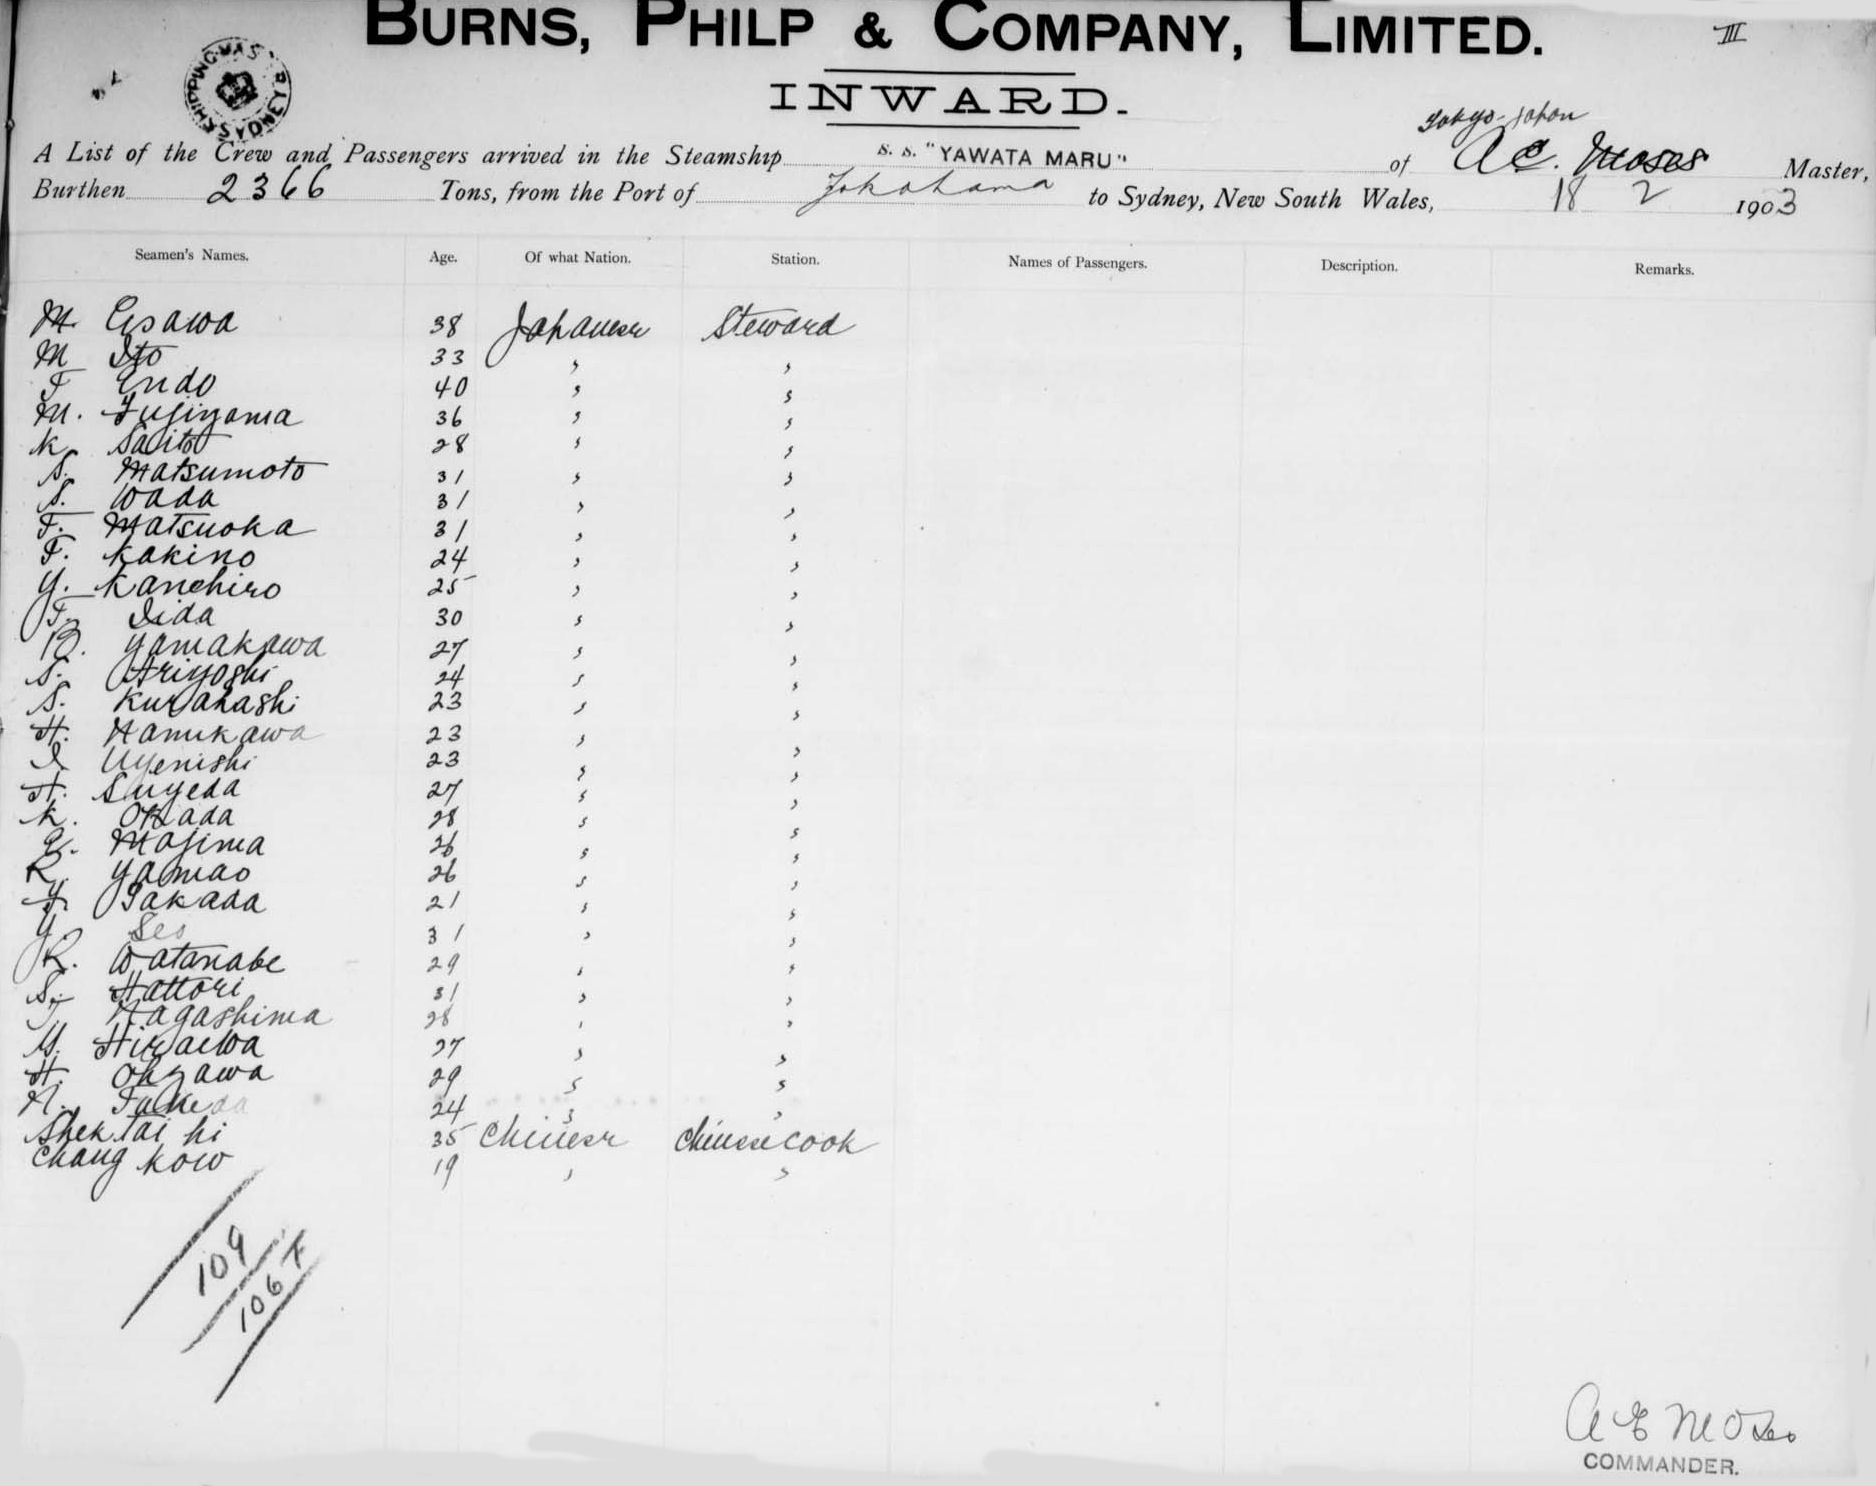 BURNS, PHILP & COMPANY, LIMITED.
III
INWARD.
SHIPPING MAS SYDNEY
Tokyo-Japan
A List of the Crew and Passengers arrived in the Steamship s. s. "YAWATA MARU" of A E. Moses Master,
Burthen 2366 Tons, from the Port of Yokohama to Sydney, New South Wales, 18 2 1903
Seamen's Names. Age. Of what Nation. Station. Names of Passengers. Description. Remarks.
M. Esawa 38 Japanese Steward
M Ito 33 " "
F Endo 40 " "
M. Fujiyama 36 " "
K Saito 28 " "
S. Matsumoto 31 " "
S. Wada 31 " "
F. Matsuoka 31 " "
F. Kakino 24 " "
Y. Kanehiro 25 " "
T. Iida 30 " "
B. Yamakawa 27 " "
S. Ariyoshi 24 " "
S. Kurahashi 23 " "
H. Namikawa 23 " "
I Uyenishi 23 " "
H. Suyeda 27 " "
K. Okada 28 " "
G. Majima 26 " "
R. Yamao 26 " "
Y. Takada 21 " "
Y. Seo 31 " "
R. Watanabe 29 " "
S. Hattori 31 " "
T Nagashima 28 " "
M. Hiraiwa 27 " "
H. Ohsawa 29 " "
N. Takeda 24 " "
Shek Tai hi 35 Chinese Chinese cook
Chang Kow 19 " "
109
106 F
A E Moses
COMMANDER.